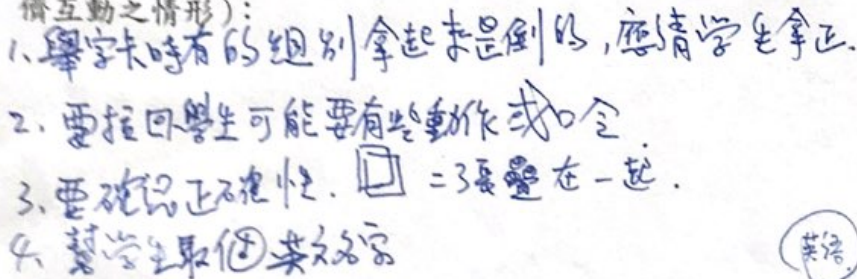 儕互動之情形):
1、舉字卡時有的組別拿起來是倒的,應請学生拿正.
2、要拉回學生可能要有些動作或口令.
3、要確認正確性. =3張疊在一起.
4、幫学生取個英文名字
英語